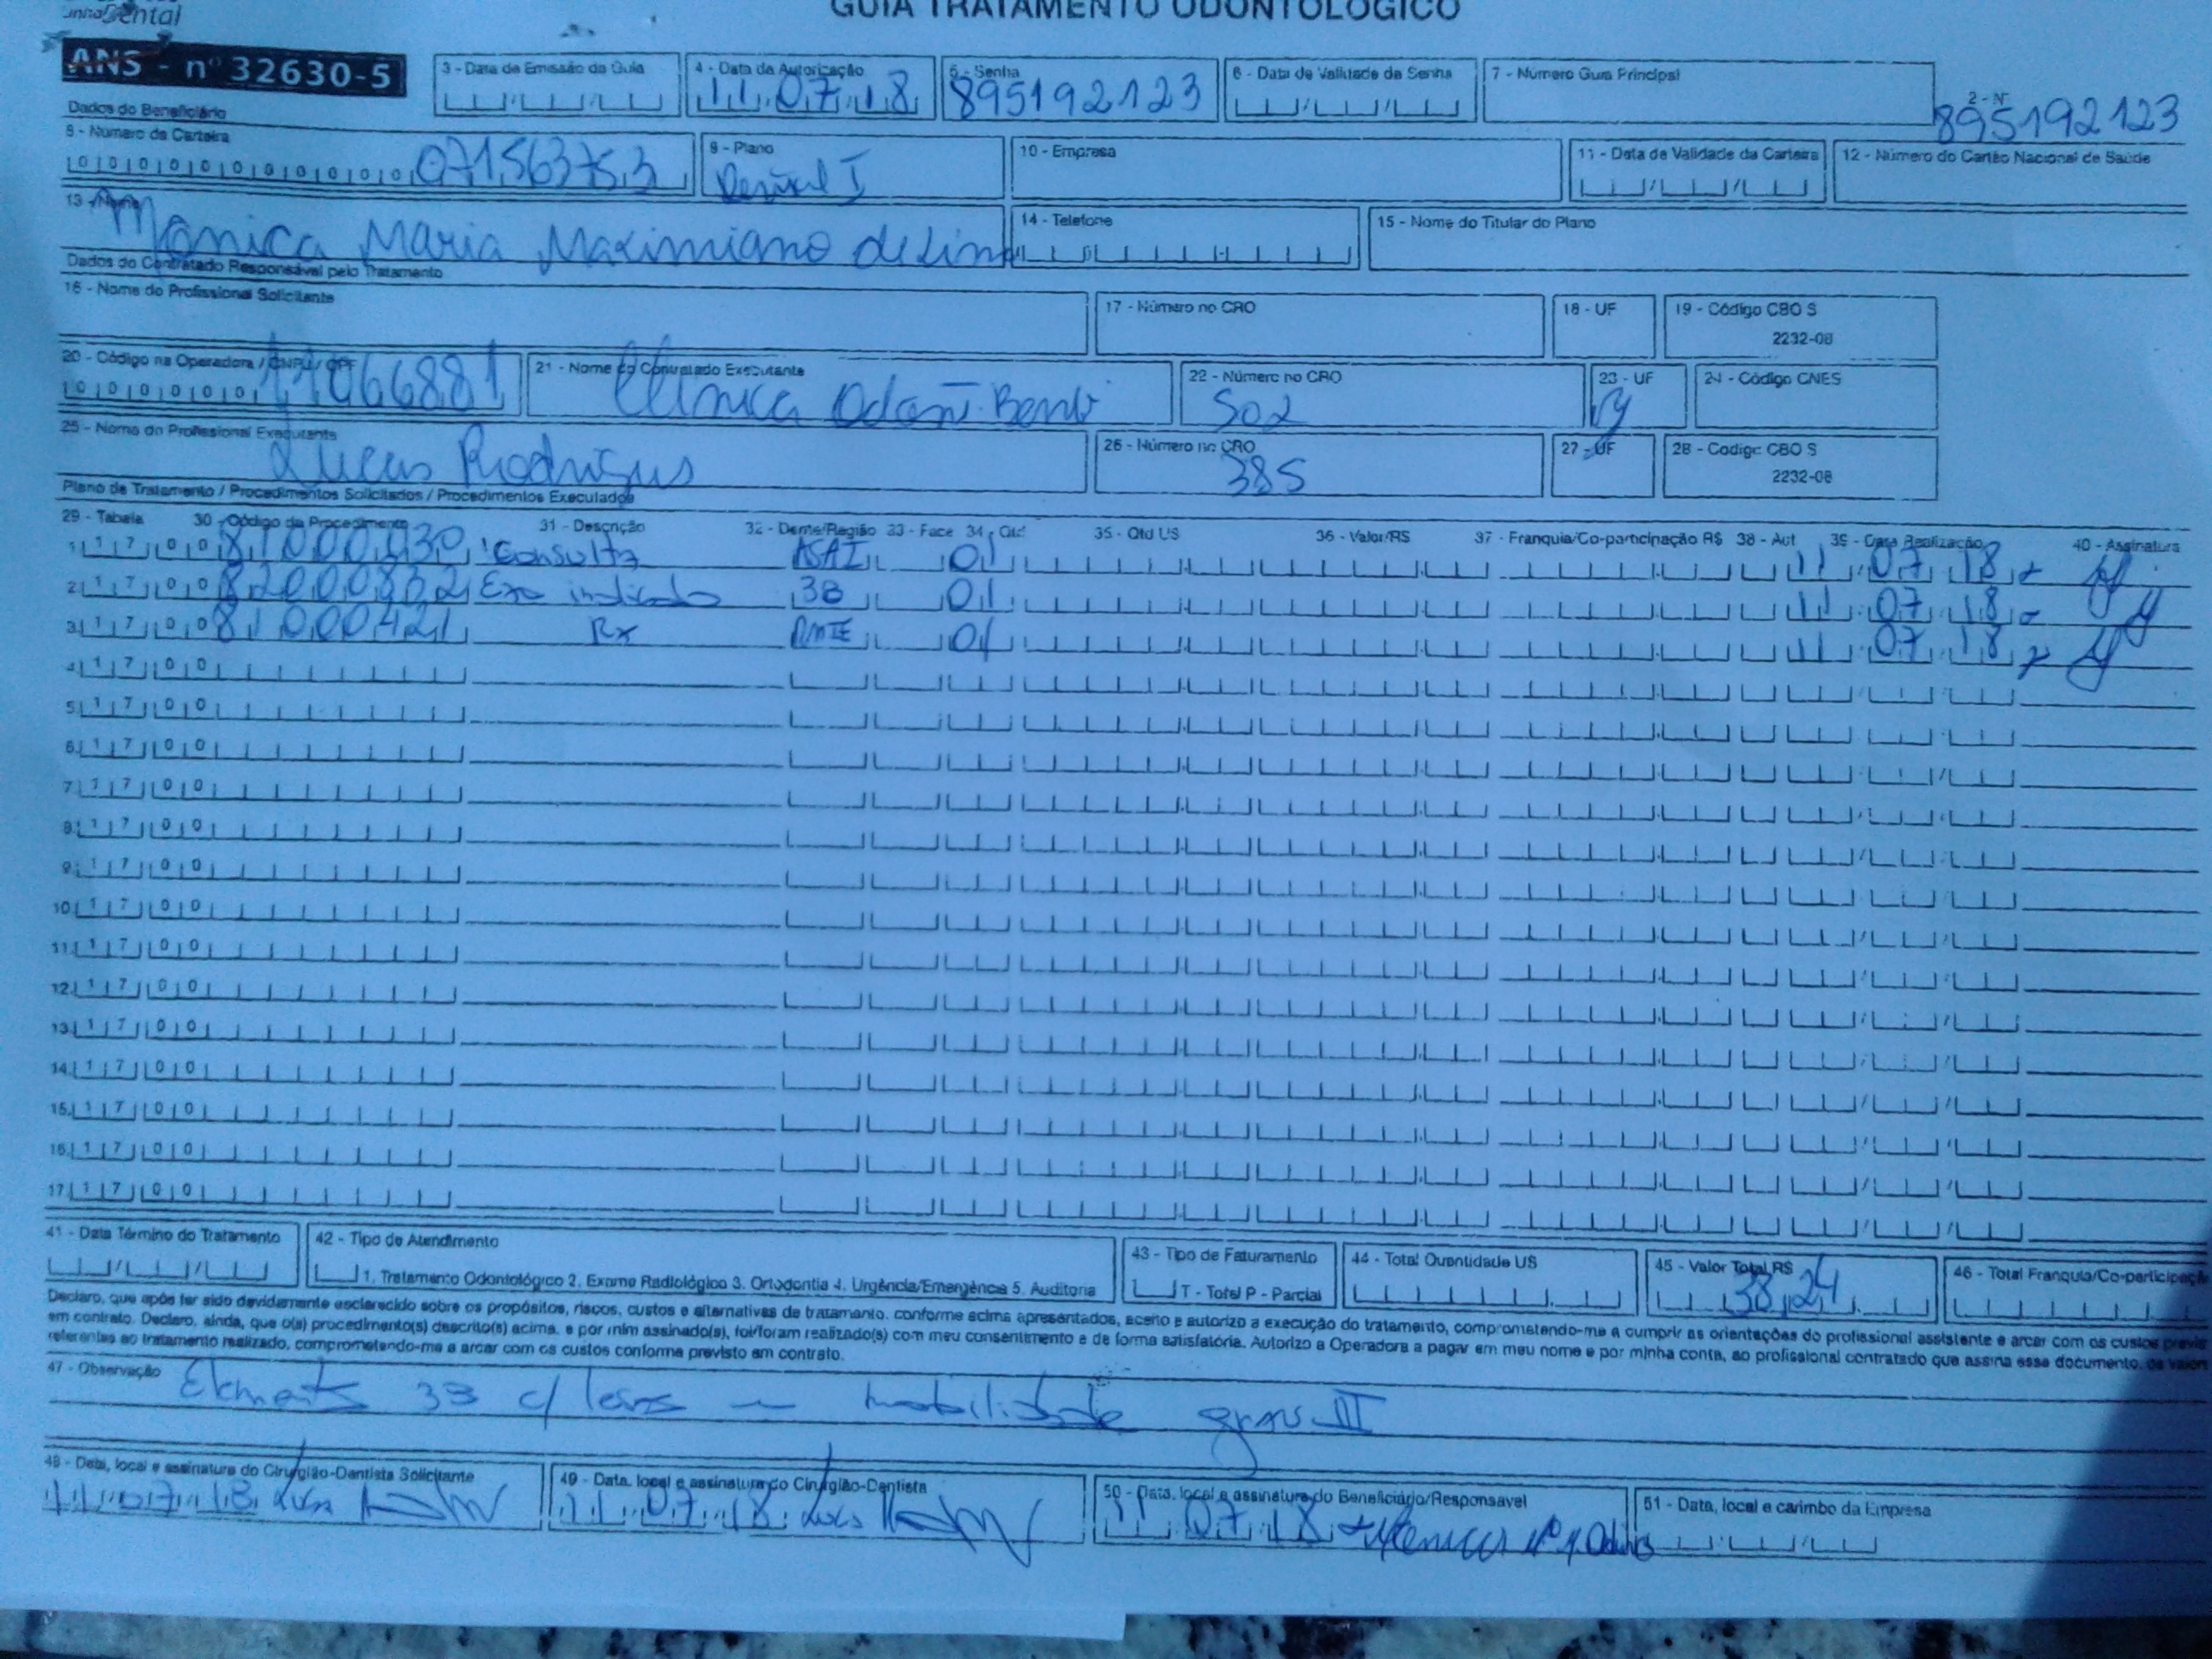 GUIA TRATAMENTO ODONTOLÓGICO
2 - Nº
895192123
ANS - nº 32630-5
3 - Data da Emissão da Guia
4 - Data da Autorização
11 07 18
5 - Senha
895192123
6 - Data de Validade da Senha
7 - Número Guia Principal
Dados do Beneficiário
8 - Número da Carteira
9 - Plano
10 - Empresa
11 - Data de Validade da Carteira
12 - Número do Cartão Nacional de Saúde
13 - Nome
Monica Maria Maximiano de Lima
14 - Telefone
15 - Nome do Titular do Plano
Dados do Contratado Responsável pelo Tratamento
16 - Nome do Profissional Solicitante
17 - Número no CRO
18 - UF
19 - Código CBO S
2232-08
20 - Código na Operadora / CNPJ / CPF
21 - Nome do Contratado Executante
22 - Número no CRO
502
23 - UF
24 - Código CNES
25 - Nome do Profissional Executante
26 - Número no CRO
385
27 - UF
28 - Codigo CBO S
2232-08
Plano de Tratamento / Procedimentos Solicitados / Procedimentos Executados
29 - Tabela 30 - Código do Procedimento 31 - Descrição 32 - Dente/Região 33 - Face 34 - Qtd 35 - Qtd US 36 - Valor/R$ 37 - Franquia/Co-participação R$ 38 - Aut 39 - Data Realização 40 - Assinatura
1 1 7 0 0 81000430 Consulta ASAI 01 11 07 18
2 1 7 0 0 82000832 Exo indicado 38 01 11 07 18
3 1 7 0 0 81000421 Rx 01 11 07 18
4 1 7 0 0
5 1 7 0 0
6 1 7 0 0
7 1 7 0 0
8 1 7 0 0
9 1 7 0 0
10 1 7 0 0
11 1 7 0 0
12 1 7 0 0
13 1 7 0 0
14 1 7 0 0
15 1 7 0 0
16 1 7 0 0
17 1 7 0 0
41 - Data Término do Tratamento
42 - Tipo de Atendimento
1. Tratamento Odontológico 2. Exame Radiológico 3. Ortodontia 4. Urgência/Emergência 5. Auditoria
43 - Tipo de Faturamento
T - Total P - Parcial
44 - Total Quantidade US
45 - Valor Total R$
38,24
46 - Total Franquia/Co-participação
Declaro, que após ter sido devidamente esclarecido sobre os propósitos, riscos, custos e alternativas de tratamento, conforme acima apresentados, aceito e autorizo a execução do tratamento, comprometendo-me a cumprir as orientações do profissional assistente e arcar com os custos previstos
em contrato. Declaro, ainda, que o(s) procedimento(s) descrito(s) acima, e por mim assinado(s), foi/foram realizado(s) com meu consentimento e de forma satisfatória. Autorizo a Operadora a pagar em meu nome e por minha conta, ao profissional contratado que assina esse documento, os valores
referentes ao tratamento realizado, comprometendo-me a arcar com os custos conforme previsto em contrato.
47 - Observação
33 c/ mobilidade grau III
48 - Data, local e assinatura do Cirurgião-Dentista Solicitante
11 07 18
49 - Data, local e assinatura do Cirurgião-Dentista
11 07 18
50 - Data, local e assinatura do Beneficiário/Responsável
11 07 18
51 - Data, local e carimbo da Empresa